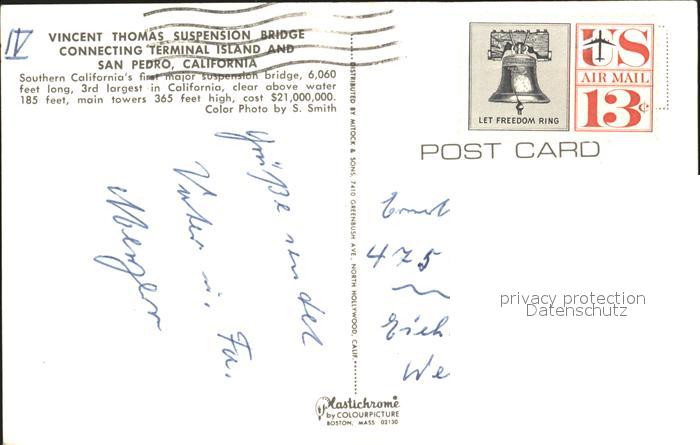 IV
VINCENT THOMAS SUSPENSION BRIDGE
CONNECTING TERMINAL ISLAND AND
SAN PEDRO, CALIFORNIA
Southern California's first major suspension bridge, 6,060
feet long, 3rd largest in California, clear above water
185 feet, main towers 365 feet high, cost $21,000,000.
Color Photo by S. Smith
Grüße sendet
Vater u. Fa.
DISTRIBUTED BY MITOCK & SONS, 7410 GREENBUSH AVE. NORTH HOLLYWOOD, CALIF.
LET FREEDOM RING
US
AIR MAIL
13¢
POST CARD
Ernst
475
Eich
We
privacy protection
Datenschutz
Plastichrome
by COLOURPICTURE
BOSTON, MASS 02130